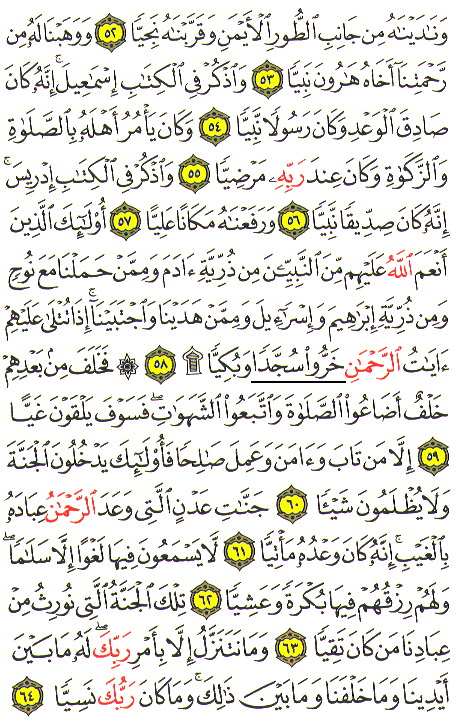 وَنَٰدَيْنَٰهُ مِن جَانِبِ ٱلطُّورِ ٱلْأَيْمَنِ وَقَرَّبْنَٰهُ نَجِيًّا ٥٢ وَوَهَبْنَا لَهُۥ مِن
رَّحْمَتِنَآ أَخَاهُ هَٰرُونَ نَبِيًّا ٥٣ وَٱذْكُرْ فِى ٱلْكِتَٰبِ إِسْمَٰعِيلَ ۚ إِنَّهُۥ كَانَ
صَادِقَ ٱلْوَعْدِ وَكَانَ رَسُولًا نَّبِيًّا ٥٤ وَكَانَ يَأْمُرُ أَهْلَهُۥ بِٱلصَّلَوٰةِ
وَٱلزَّكَوٰةِ وَكَانَ عِندَ رَبِّهِۦ مَرْضِيًّا ٥٥ وَٱذْكُرْ فِى ٱلْكِتَٰبِ إِدْرِيسَ ۚ
إِنَّهُۥ كَانَ صِدِّيقًا نَّبِيًّا ٥٦ وَرَفَعْنَٰهُ مَكَانًا عَلِيًّا ٥٧ أُو۟لَٰٓئِكَ ٱلَّذِينَ
أَنْعَمَ ٱللَّهُ عَلَيْهِم مِّنَ ٱلنَّبِيِّۦنَ مِن ذُرِّيَّةِ ءَادَمَ وَمِمَّنْ حَمَلْنَا مَعَ نُوحٍ
وَمِن ذُرِّيَّةِ إِبْرَٰهِيمَ وَإِسْرَٰٓءِيلَ وَمِمَّنْ هَدَيْنَا وَٱجْتَبَيْنَآ ۚ إِذَا تُتْلَىٰ عَلَيْهِمْ
ءَايَٰتُ ٱلرَّحْمَٰنِ خَرُّوا۟ سُجَّدًا وَبُكِيًّا ۩ ٥٨ ۞ فَخَلَفَ مِنۢ بَعْدِهِمْ
خَلْفٌ أَضَاعُوا۟ ٱلصَّلَوٰةَ وَٱتَّبَعُوا۟ ٱلشَّهَوَٰتِ ۖ فَسَوْفَ يَلْقَوْنَ غَيًّا
٥٩ إِلَّا مَن تَابَ وَءَامَنَ وَعَمِلَ صَٰلِحًا فَأُو۟لَٰٓئِكَ يَدْخُلُونَ ٱلْجَنَّةَ
وَلَا يُظْلَمُونَ شَيْـًٔا ٦٠ جَنَّٰتِ عَدْنٍ ٱلَّتِى وَعَدَ ٱلرَّحْمَٰنُ عِبَادَهُۥ
بِٱلْغَيْبِ ۚ إِنَّهُۥ كَانَ وَعْدُهُۥ مَأْتِيًّا ٦١ لَّا يَسْمَعُونَ فِيهَا لَغْوًا إِلَّا سَلَٰمًا ۖ
وَلَهُمْ رِزْقُهُمْ فِيهَا بُكْرَةً وَعَشِيًّا ٦٢ تِلْكَ ٱلْجَنَّةُ ٱلَّتِى نُورِثُ مِنْ
عِبَادِنَا مَن كَانَ تَقِيًّا ٦٣ وَمَا نَتَنَزَّلُ إِلَّا بِأَمْرِ رَبِّكَ ۖ لَهُۥ مَا بَيْنَ
أَيْدِينَا وَمَا خَلْفَنَا وَمَا بَيْنَ ذَٰلِكَ ۚ وَمَا كَانَ رَبُّكَ نَسِيًّا ٦٤